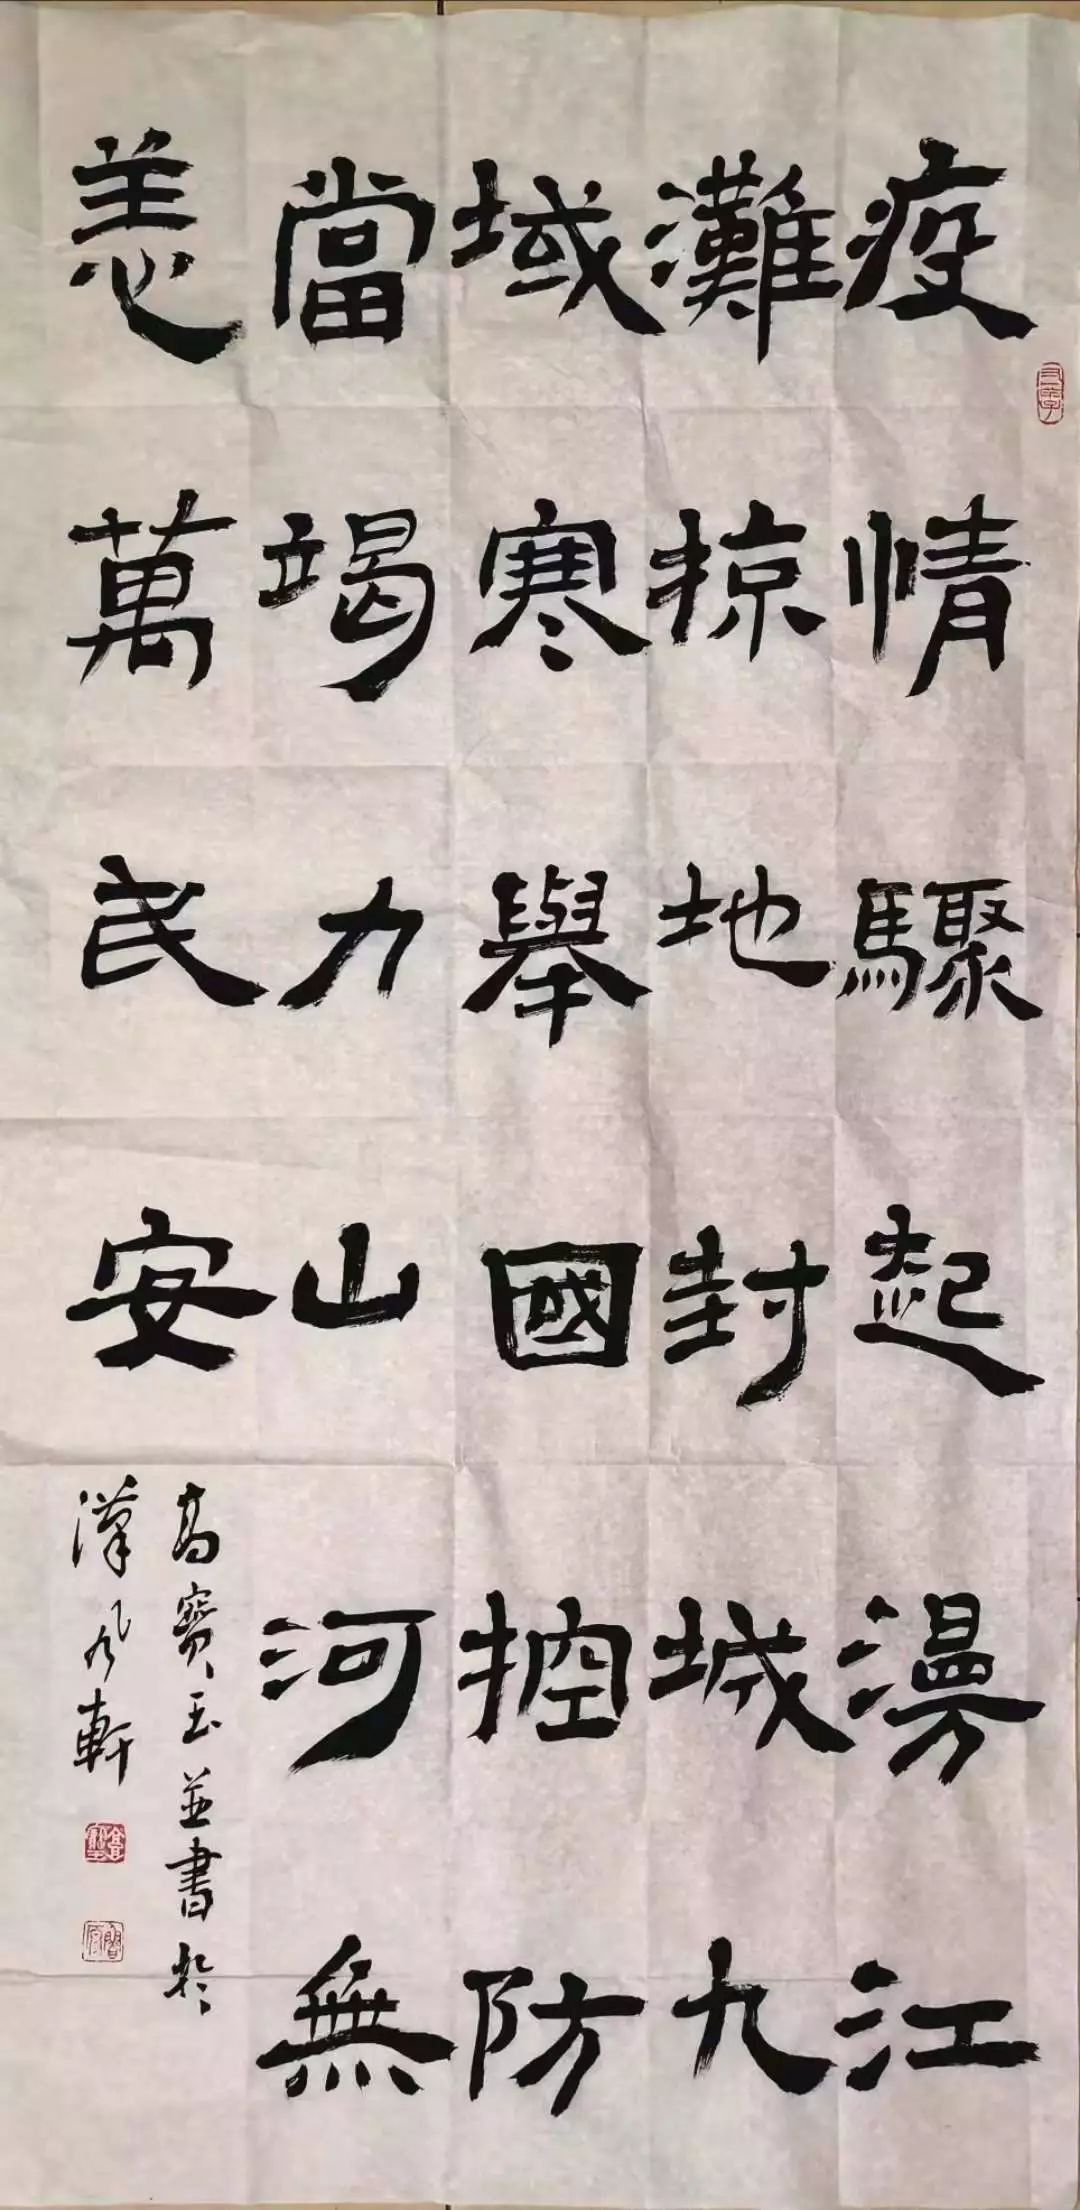 疫情驟起漫江
灘掠地封城九
域寒舉國控防
當竭力山河無
恙萬民安
高寶玉並書於
漢風軒